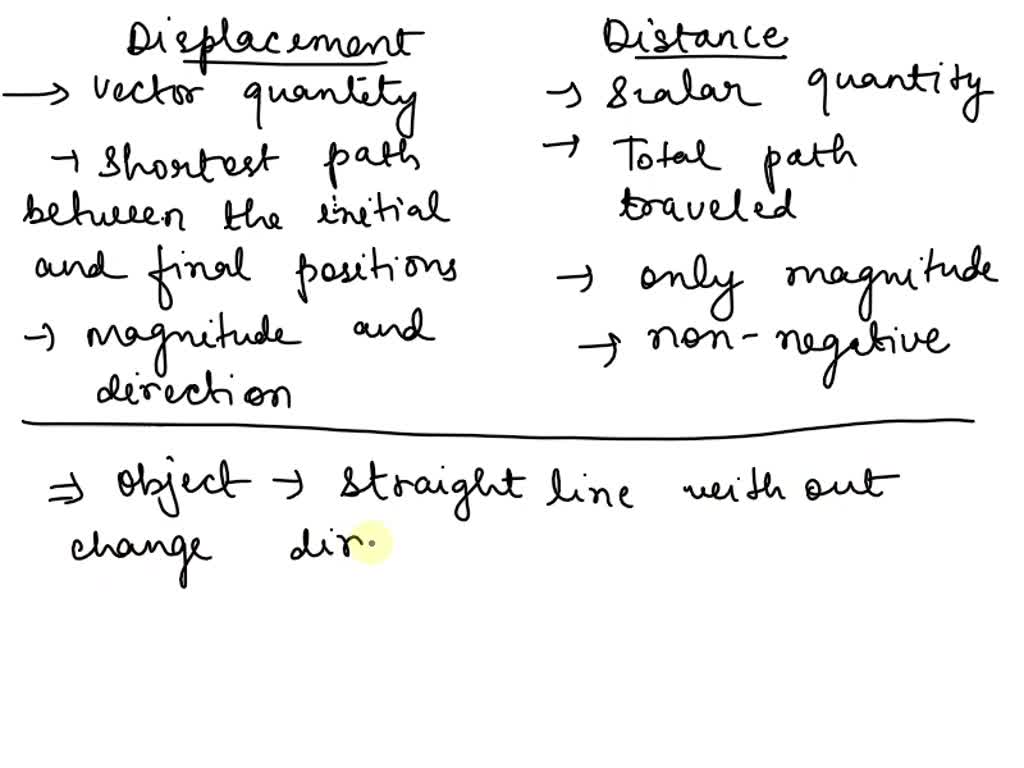 Displacement
→ vector quantity
→ shortest path
between the initial
and final positions
→ magnitude and
direction
Distance
→ scalar quantity
→ Total path
traveled
→ only magnitude
→ non-negative
⇒ object → straight line with out
change dir